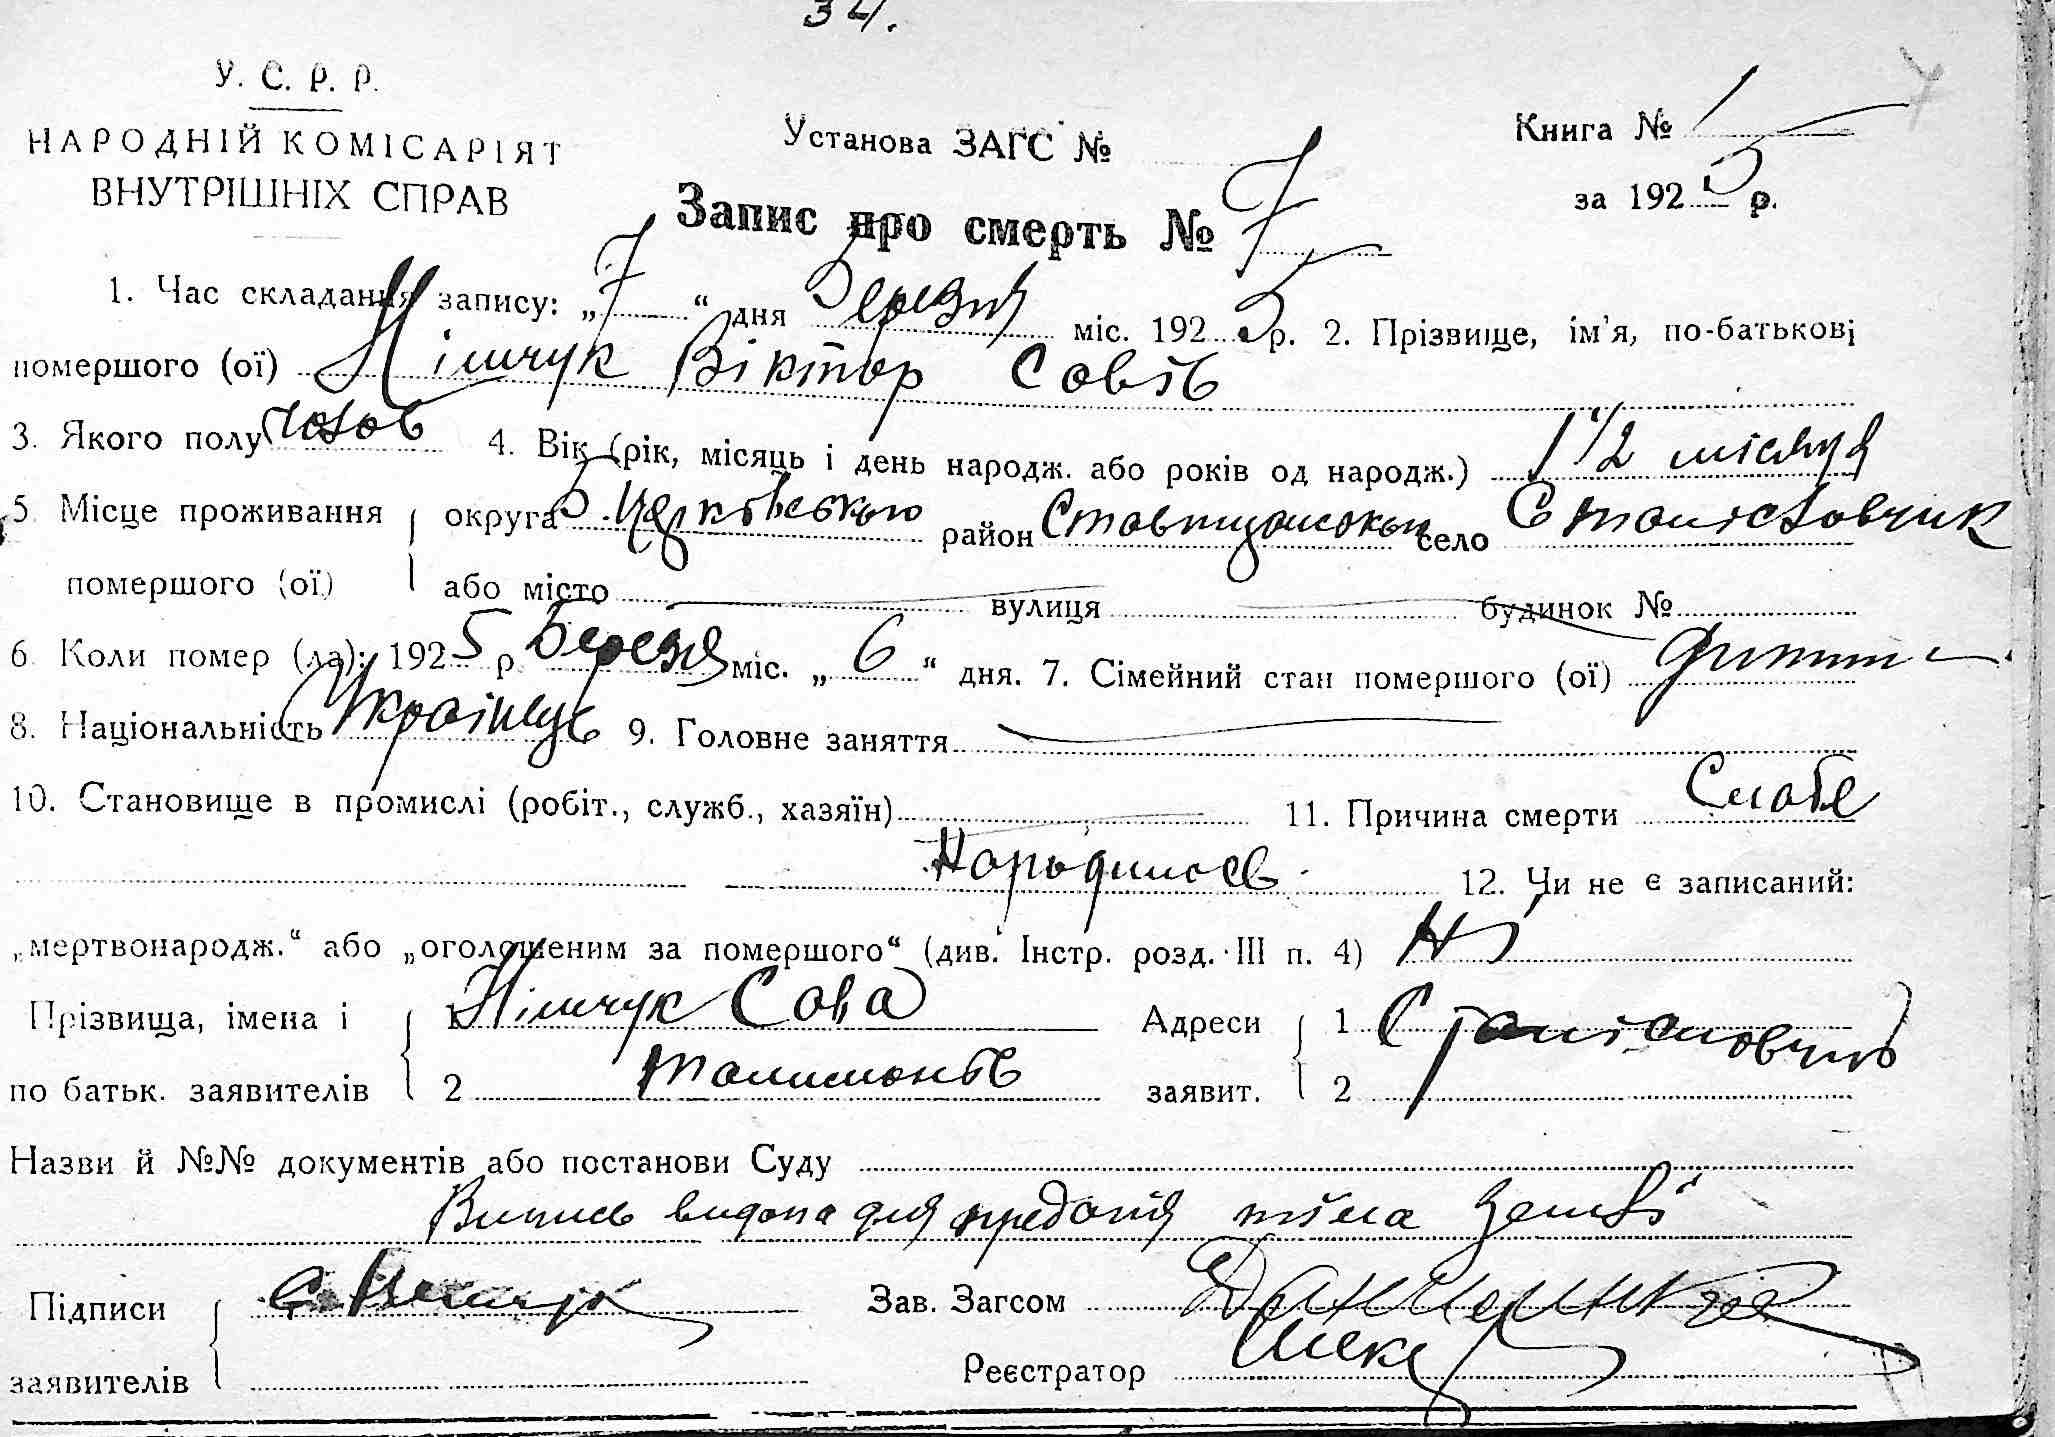 34.
У. С. Р. Р.
НАРОДНІЙ КОМІСАРІЯТ
ВНУТРІШНІХ СПРАВ
Установа ЗАГС №
Книга № 1
за 1925 р.
Запис про смерть № 7
1. Час складання запису: „7“ дня Березня міс. 1925 р. 2. Прізвище, ім'я, по-батькові
помершого (ої) Німчук Віктор Савів
3. Якого полу чолов 4. Вік (рік, місяць і день народж. або років од народж.) 1 1/2 місяця
5. Місце проживання округа Б. Церковською район Ставищанською село Станіславчик
помершого (ої) або місто вулиця будинок №
6. Коли помер (ла): 1925 р. Березня міс. „6“ дня. 7. Сімейний стан помершого (ої)
8. Національність Українець 9. Головне заняття
10. Становище в промислі (робіт., служб., хазяїн) 11. Причина смерти Слабе
Народилось 12. Чи не є записаний:
„мертвонародж.“ або „оголошеним за помершого“ (див. Інстр. розд. III п. 4) Ні
Прізвища, імена і 1 Німчук Сава Адреси 1 Станіславчик
по батьк. заявителів 2 заявит. 2
Назви й №№ документів або постанови Суду
Випись видана для предання тіла землі
Підписи С. Німчук Зав. Загсом
заявителів Реєстратор